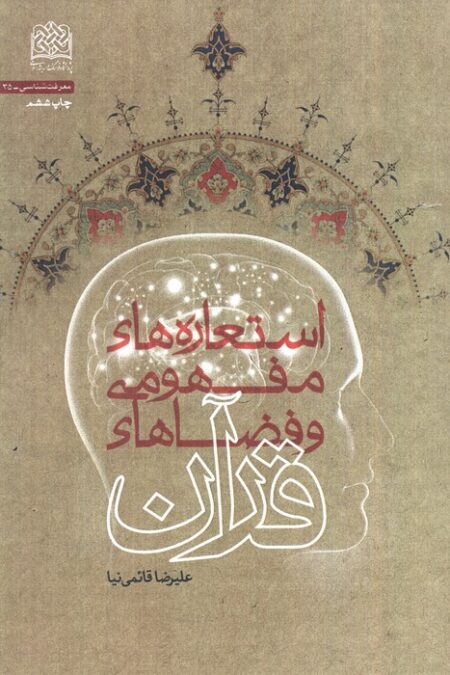 معرفت‌شناسی ـ ۳۵
چاپ ششم
استعاره‌های
مفهومی
و فضاهای
قرآن
علیرضا قائمی‌نیا